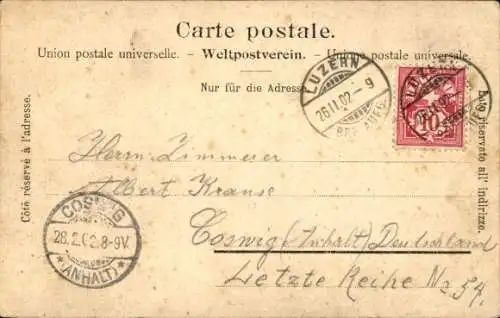 Carte postale.
Union postale universelle. - Weltpostverein. - Unione postale universale.
Nur für die Adresse.
Côté réservé à l'adresse.
Lato riservato all' indirizzo.
LUZERN
26.II.02.-9
BRF. AUFG.
LUZERN
10
Herrn Zimmerer
Albert Krause
Coswig (Anhalt) Deutschland
Letzte Reihe No 54.
COSWIG
28.2.02.8-9V.
*(ANHALT)*